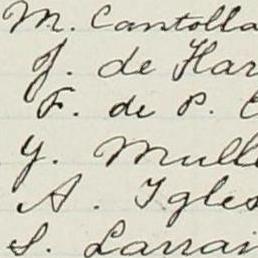 M. Cantolla
J. de Har
F. de P. C
Y. Mull
A. Igles
S. Larrai